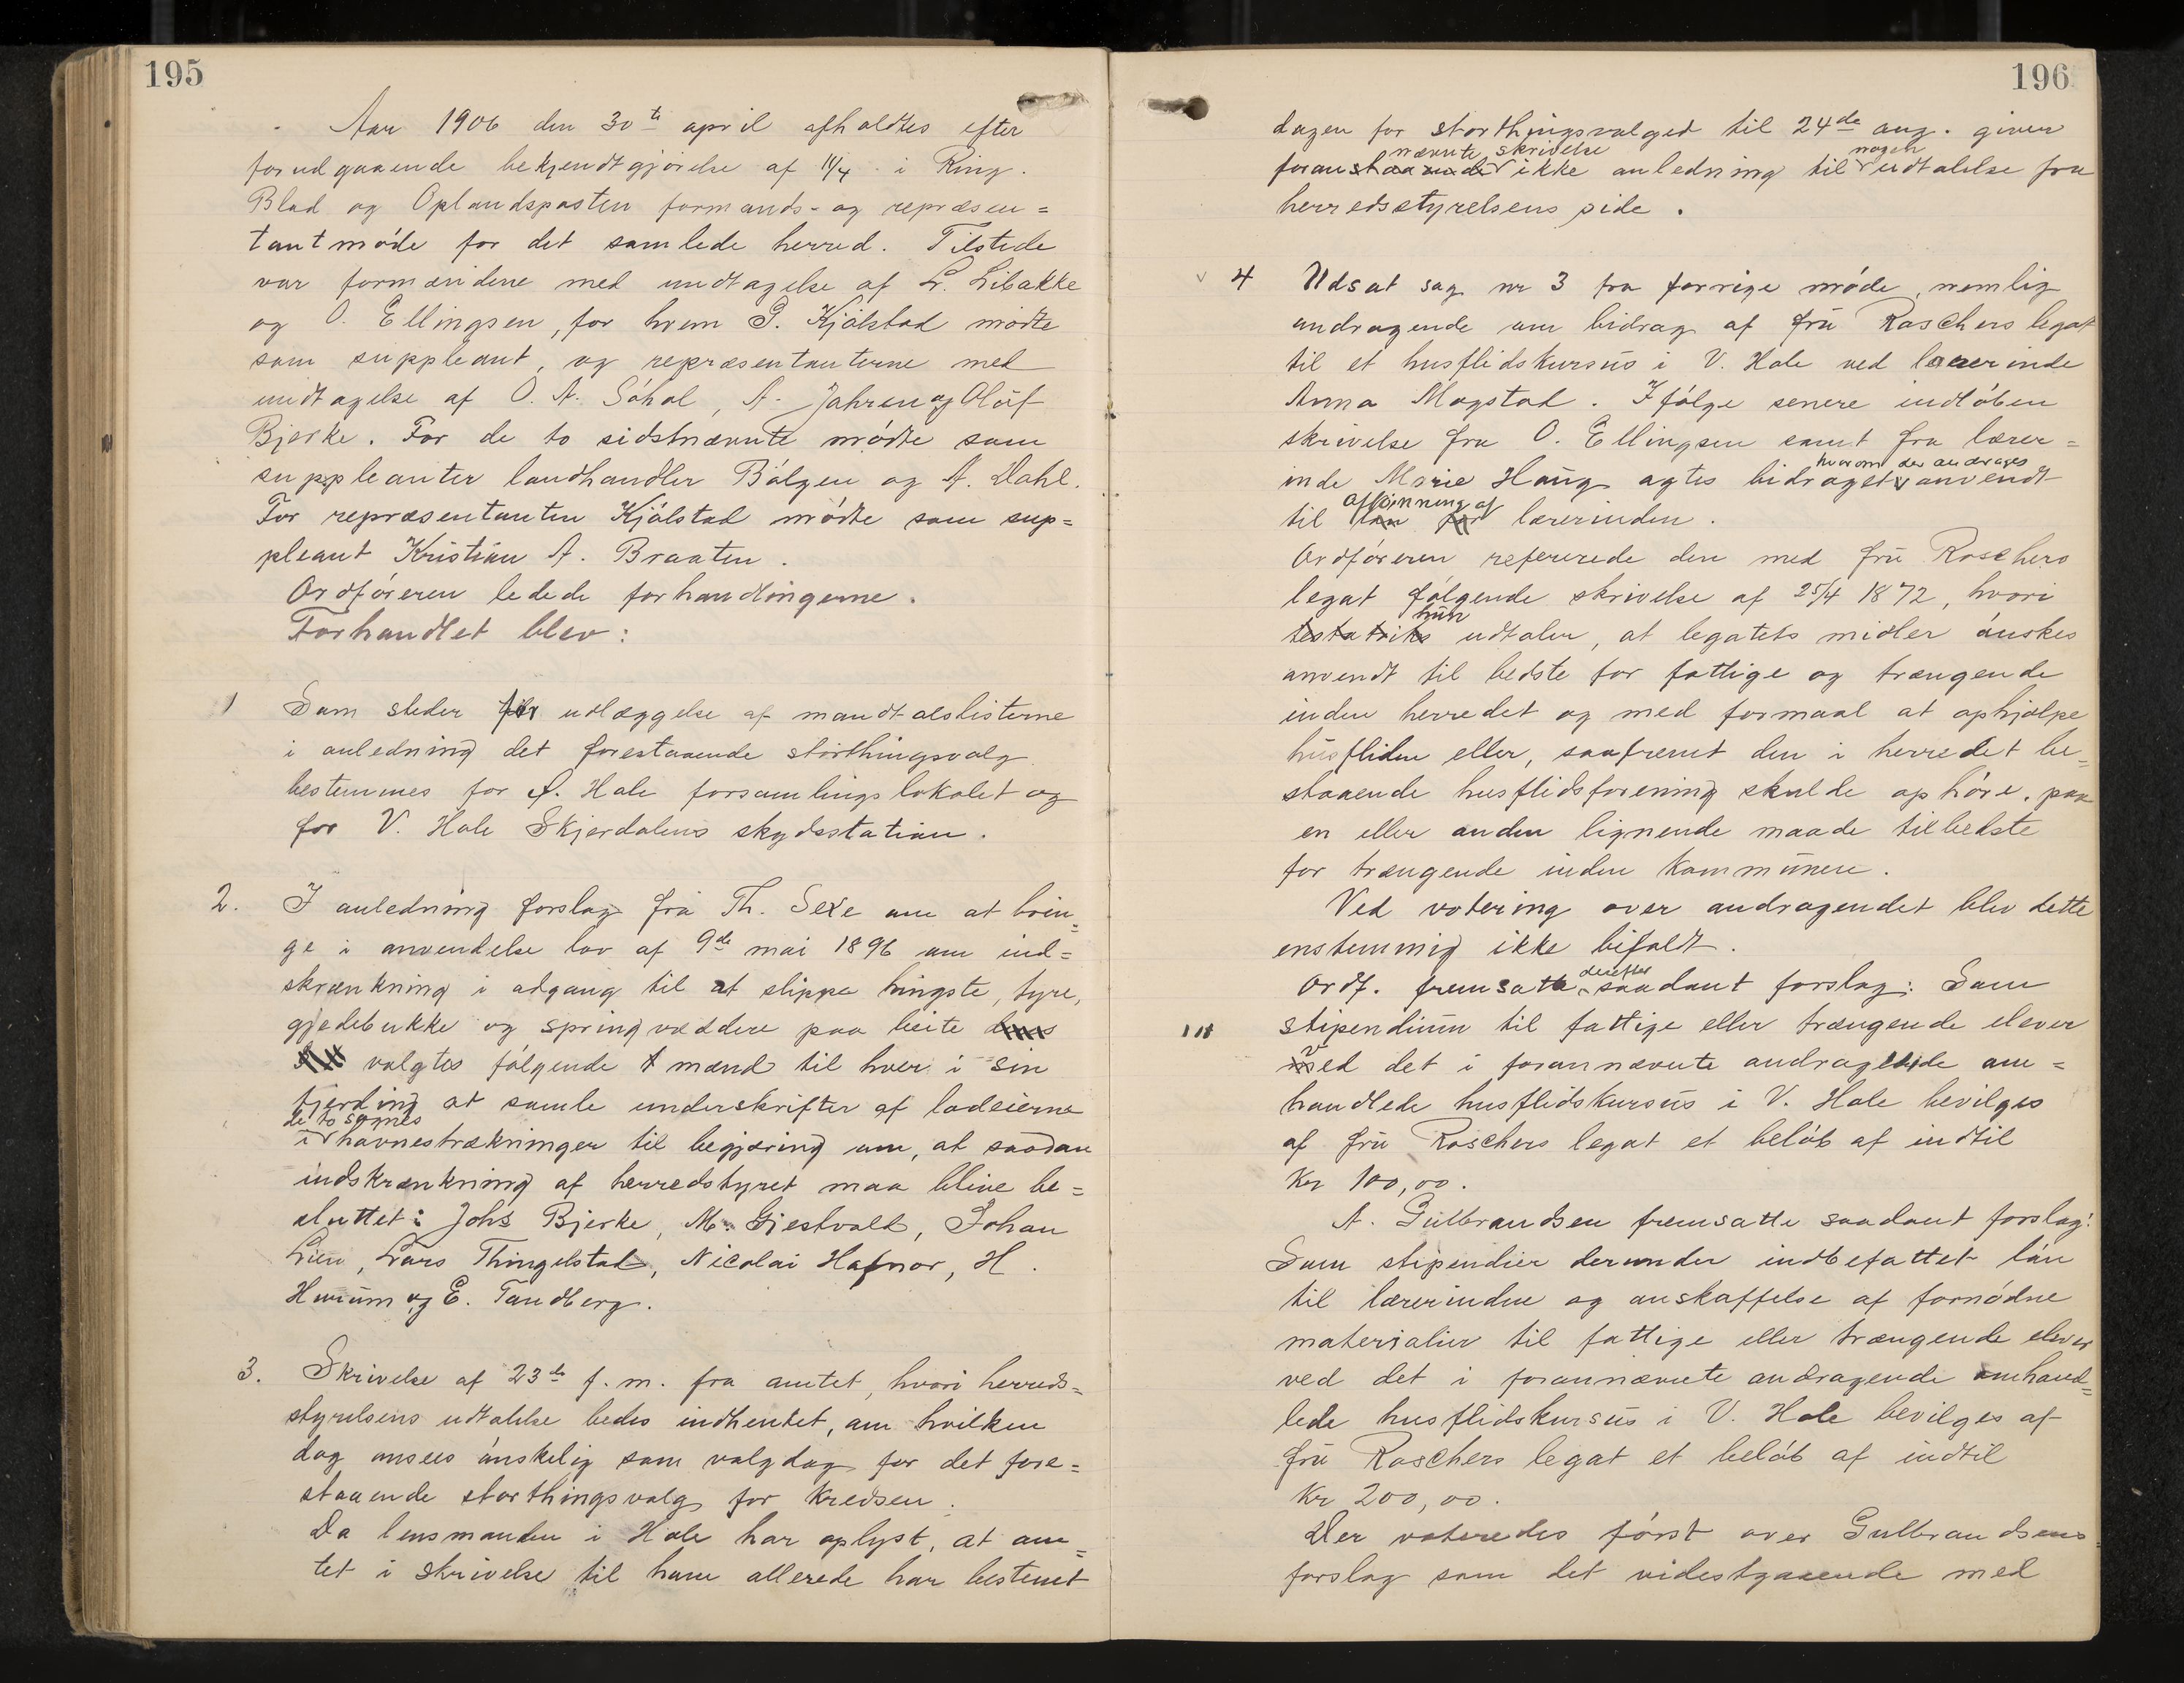 195
Aar 1906 den 30te april afholdtes efter
forudgaaende bekjendtgjørelse af 11/4 i Ring.
Blad og Oplandsposten formands- og repræsen=
tantmøde for det samlede herred. Tilstede
var formændene med undtagelse af L. Libakke
og O. Ellingsen, for hvem G. Kjølstad mødte
som suppleant, og repræsentanterne med
undtagelse af O. A. Søhol, A. Jahren og Oluf
Bjerke. For de to sidstnævnte mødte som
suppleanter landhandler Bølgen og A. Dahl.
For repræsentanten Kjølstad mødte som sup=
pleant Kristian A. Braaten.
Ordføreren ledede forhandlingerne.
Forhandlet blev:
1 Som steder for udlæggelse af mandtalslisterne
i anledning det forestaaende storthingsvalg
bestemmes for Hole forsamlingslokalet og
for V. Hole Skjerdalens skydsstation.
2. I anledning forslag fra Th. Sexe om at brin=
ge i anvendelse lov af 9de mai 1896 om ind=
skrænkning i adgang til at slippe hingste, tyre,
gjedebukke og springvæddere paa beite
valgtes følgende mænd til hver i sin
fjerding at samle underskrifter af lodseierne
de to sognes
i havnestrækninger til begjæring om, at saadan
indskrænkning af herredstyret maa blive be=
sluttet: Johs Bjerke, M. Gjestvold, Johan
Lien, Lars Thingelstad, Nicolai Hafnor, H.
Hurum og E. Tandberg.
3. Skrivelse af 23de f. m. fra amtet, hvori herreds=
styrelsens udtalelse bedes indhentet, om hvilken
dag ansees ønskelig som valgdag for det fore=
staaende storthingsvalg for kredsen.
Da lensmanden i Hole har oplyst, at am=
tet i skrivelse til ham allerede har bestemt
196
dagen for storthingsvalget til 24de aug. giver
nævnte skrivelse nogen
foranstaaende ikke anledning til udtalelse fra
herredsstyrelsens side.
4 Udsat sag nr 3 fra forrige møde, nemlig
andragende om bidrag af fru Roschers legat
til et husflidskursus i V. Hole ved lærerinde
Anna Mogstad. Ifølge senere indløben
skrivelse fra O. Ellingsen samt fra lærer=
hvorom der andrages
inde Marie Haug agtes bidraget anvendt
aflønning af
til løn for lærerinden.
Ordføreren refererede den med fru Roschers
legat følgende skrivelse af 25/4 1872, hvori
hun
testatrix udtaler, at legatets midler ønskes
anvendt til bedste for fattige og trængende
inden herredet og med formaal at ophjælpe
husfliden eller, saafremt den i herredet be=
staaende husflidsforening skulde ophøre, paa
en eller anden lignende maade tilbedste
for trængende inden kommunen.
Ved votering over andragendet blev dette
enstemmig ikke bifaldt.
derefter
Ordf. fremsatte saadant forslag: Som
stipendium til fattige eller trængende elever
ved det i forannævnte andragende om=
handlede husflidskursus i V. Hole bevilges
af fru Roschers legat et beløb af indtil
Kr 100,00.
A. Gulbrandsen fremsatte saadant forslag:
Som stipendier derunder indbefattet løn
til lærerinden og anskaffelse af fornødne
materialier til fattige eller trængende elever
ved det i forannævnte andragende omhand=
lede husflidskursus i V. Hole bevilges af
fru Roschers legat et beløb af indtil
Kr 200,00.
Der voteredes først over Gulbrandsens
forslag som det videstgaaende med